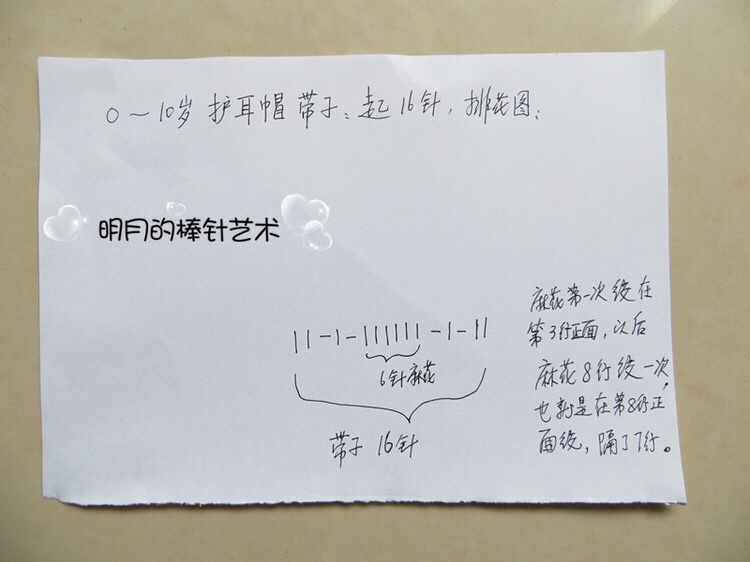 0~10岁 护耳帽 带子:起16针,排花图:
明月的棒针艺术
麻花第一次绞在
第3行正面,以后
麻花8行绞一次,
也就是在第8行正
面绞,隔了7行。
||-|-||||||-|-||
6针麻花
带子 16针